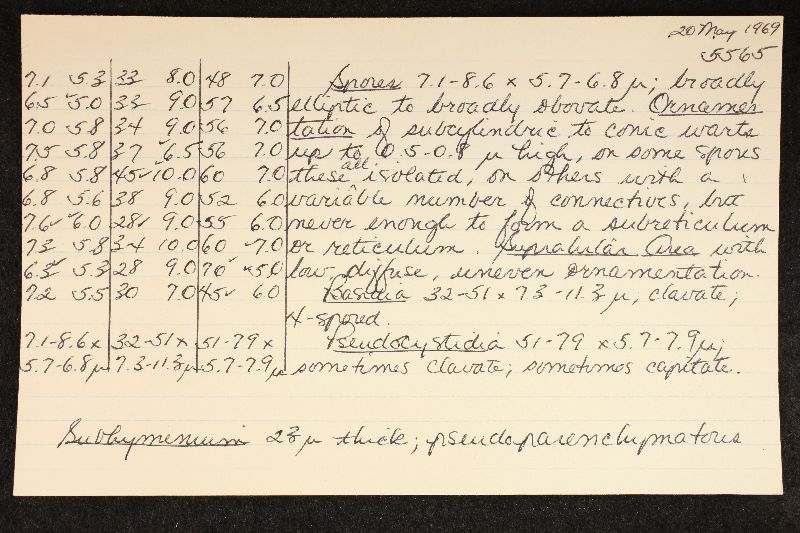 20 May 1969
5565
7.1 5.3 33 8.0 48 7.0 Spores 7.1-8.6 x 5.7-6.8 µ; broadly
6.5 5.0 33 9.0 57 6.5 elliptic to broadly obovate. Ornamen
7.0 5.8 34 9.0 56 7.0 tation of subcylindric to conic warts
7.5 5.8 37 6.5 56 7.0 up to 0.5-0.8 µ high, on some spores
6.8 5.8 45 10.0 60 7.0 these all isolated, on others with a
6.8 5.6 38 9.0 52 6.0 variable number of connectives, but
7.6 6.0 28 9.0 55 6.0 never enough to form a subreticulum
7.3 5.8 34 10.0 60 7.0 or reticulum. Suprahilar Area with
6.3 5.3 28 9.0 70 5.0 low, diffuse, uneven ornamentation.
7.2 5.5 30 7.0 45 6.0 Basidia 32-51 x 7.3-11.3 µ, clavate;
4-spored.
7.1-8.6 x 32-51 x 51-79 x Pseudocystidia 51-79 x 5.7-7.9 µ;
5.7-6.8 µ 7.3-11.3 µ 5.7-7.9 µ sometimes clavate; sometimes capitate.
Subhymenium 23 µ thick; pseudoparenchymatous